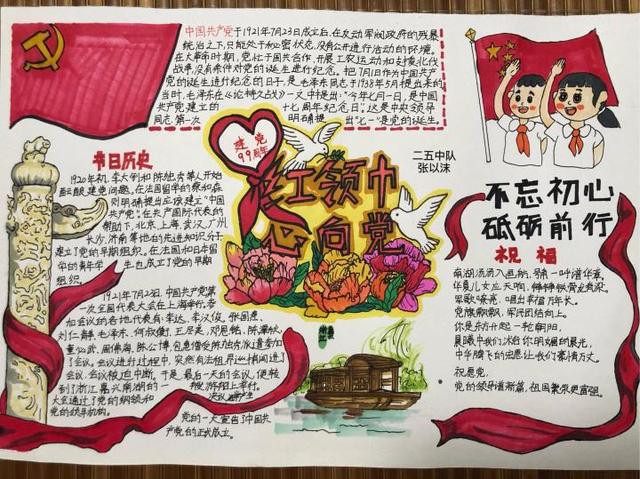 中国共产党于1921年7月23日成立后,在反动军阀政府的残暴
统治之下,只能处于秘密状态,没有公开进行活动的环境。
在大革命时期,党忙于国共合作、开展工农运动和支援北伐
战争,没有条件对党的诞生进行纪念。把7月1日作为中国共产
党的诞生进行纪念的日子,是毛泽东同志于1938年5月提出来的
当时,毛泽东在《论持久战》一文中提出:"今年七月一日,是中国
共产党建立的十七周年纪念日",这是中央领导
同志第一次明确提出"七一"是党的诞生。
建党
99周年
二五中队
张以沫
红领巾
心向党
节日历史
1920年初,李大钊和陈独秀等人开始
酝酿建党问题。在法国留学的蔡和森
则明确提出应该建立"中国
共产党"。在共产国际代表的
帮助下,北京、上海、武汉、广州
长沙、济南等地的先进知识分子
建立了党的早期组织。在法国和日本留
学的青年学生也成立了党的早期
组织。
1921年7月23日,中国共产党第
一次全国代表大会在上海举行,参
加会议的各地代表有:李达、李汉俊、张国焘、
刘仁静、毛泽东、何叔衡、王尽美、邓恩铭、陈潭秋、
董必武、周佛海、陈公博、包惠僧受陈独秀派遣参加
了会议。
会议被迫中断。于是,最后一天的会议,便转
到了浙江嘉兴南湖的一
大会通过了党的纲领和
党的领导机构。
党的一大宣告了中国共
产党的正式成立。
不忘初心
砥砺前行
祝福
华夏儿女应天响,
军歌嘹亮,唱出幸福万年长。
党旗飘飘,军民团结向上。
你是东方升起一轮朝阳,
晨曦中我们沐浴你明媚的晨光,
中华腾飞的祖愿让我们豪情万丈。
祝愿党,
党的领导谱新篇,祖国繁荣更富强。